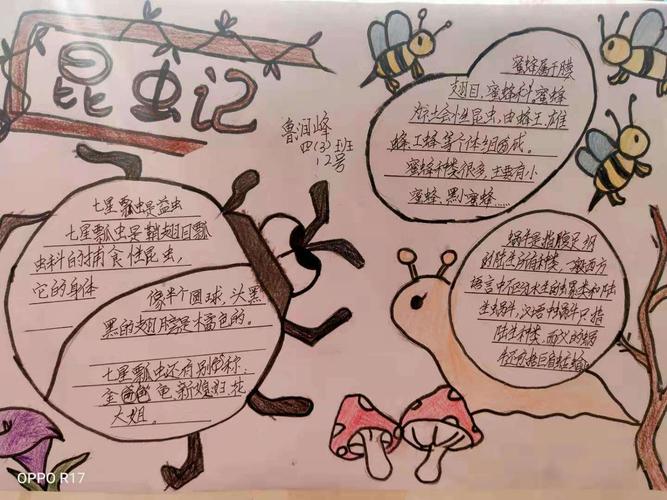 昆虫记
鲁润峰
四(3)班
12号
蜜蜂属于膜
翅目、蜜蜂科。蜜蜂
是社会性昆虫,由蜂王、雄
蜂、工蜂等个体组成。
蜜蜂种类很多,主要有小
蜜蜂、黑小蜜蜂……
七星瓢虫是益虫
七星瓢虫是鞘翅目瓢
虫科的捕食性昆虫,
它的身体
像半个圆球,头黑
黑的翅膀是橘色的。
七星瓢虫还有别的称,
金 龟、新媳妇、花
大姐。
蜗牛是指腹足纲
的陆生所有种类,一般西方
语言中不区分水生的螺类和陆
生蜗牛,汉语中蜗牛只指
陆生种类,而广义的蜗
牛还包括巨
OPPO R17